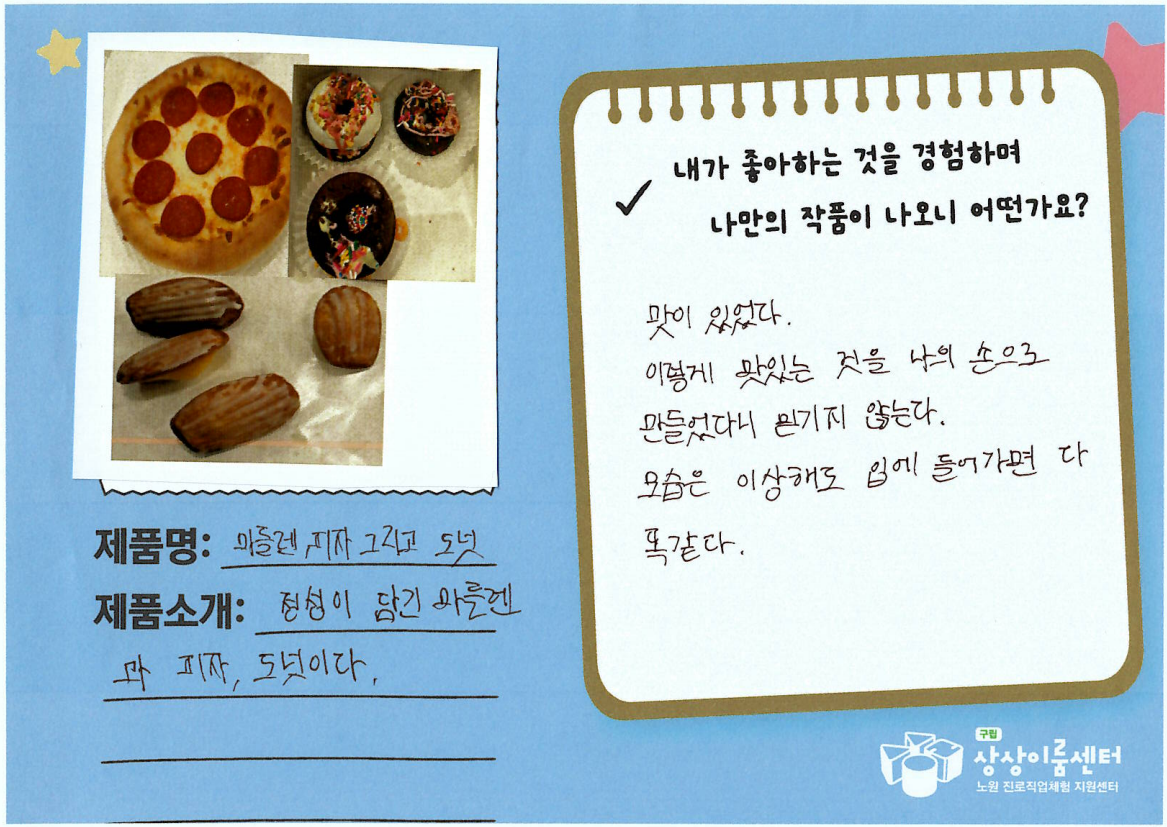 제품명: 마들렌, 피자 그리고 도넛
제품소개: 정성이 담긴 마들렌
과 피자, 도넛이다.
내가 좋아하는 것을 경험하며
나만의 작품이 나오니 어떤가요?
맛이 있었다.
이렇게 맛있는 것을 나의 손으로
만들었다니 믿기지 않는다.
모습은 이상해도 입에 들어가면 다
똑같다.
구립
상상이룸센터
노원 진로직업체험 지원센터